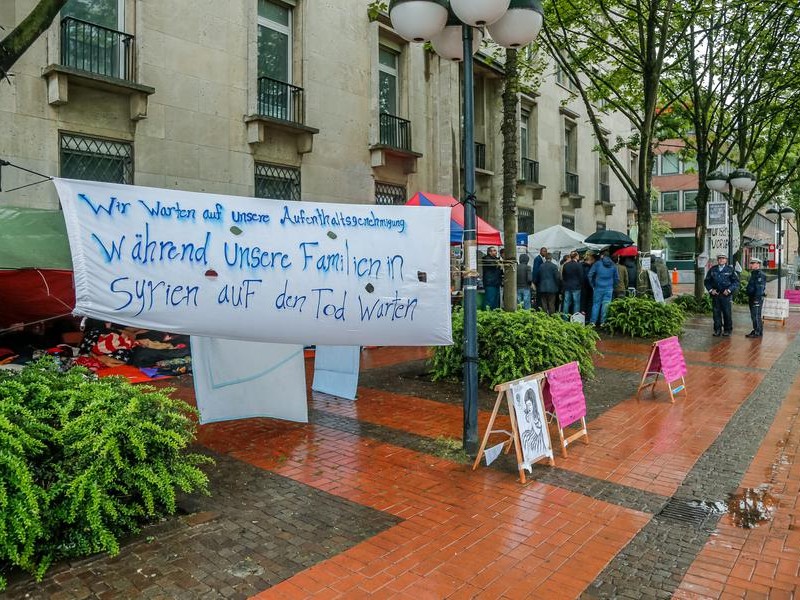 Wir Warten auf unsere Aufenthaltsgenehmigung
Während unsere Familien in
Syrien auf den Tod Warten